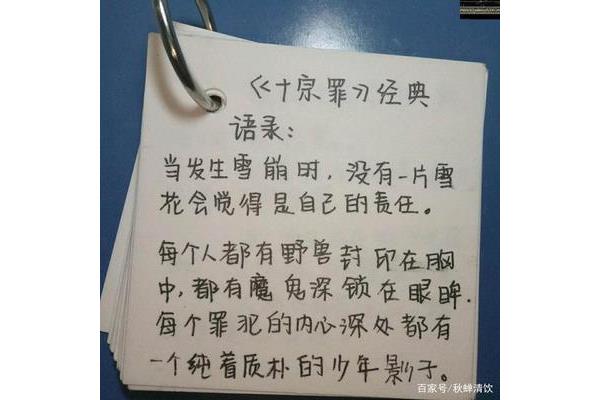 《十宗罪》经典
语录:
当发生雪崩时,没有一片雪
花会觉得是自己的责任。
每个人都有野兽封印在胸
中,都有魔鬼深锁在眼眸.
每个罪犯的内心深处都有
一个纯着质朴的少年影子。
百家号/秋蝉清饮